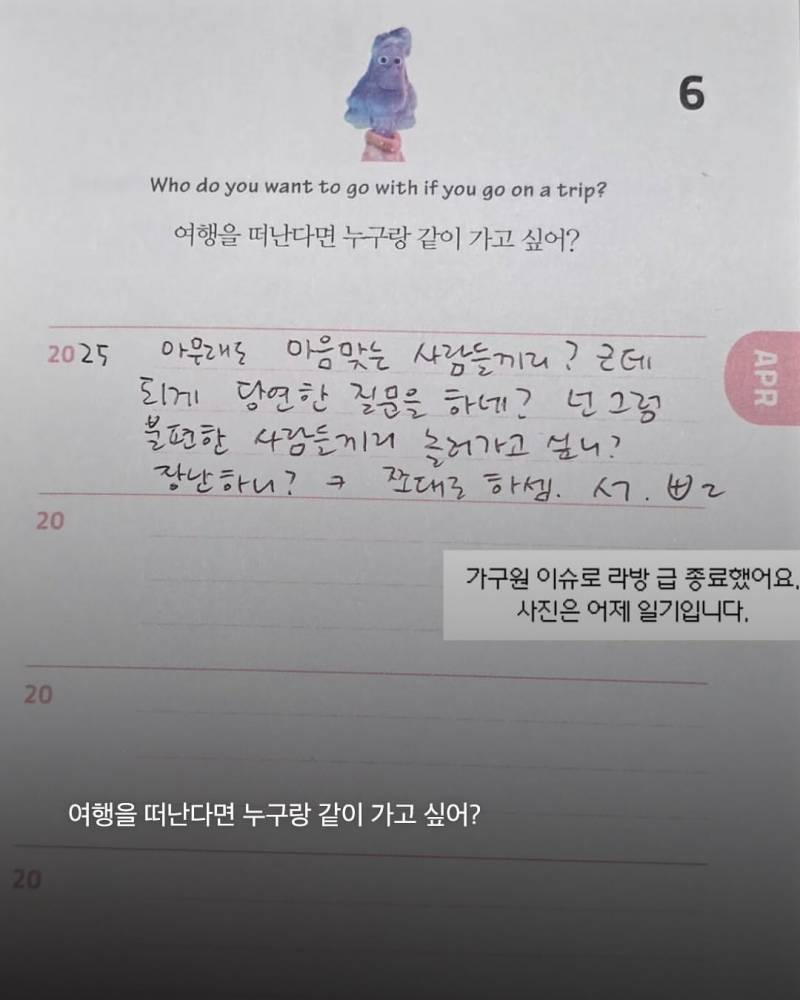 6
Who do you want to go with if you go on a trip?
여행을 떠난다면 누구랑 같이 가고 싶어?
2025 아무래도 마음맞는 사람들끼리? 근데
되게 당연한 질문을 하네? 넌 그럼
불편한 사람들끼리 놀러가고 싶니?
장난하니? ㅋ 쪼대로 하셈.
APR
20
가구원 이슈로 라방 급 종료했어요.
사진은 어제 일기입니다.
20
여행을 떠난다면 누구랑 같이 가고 싶어?
20